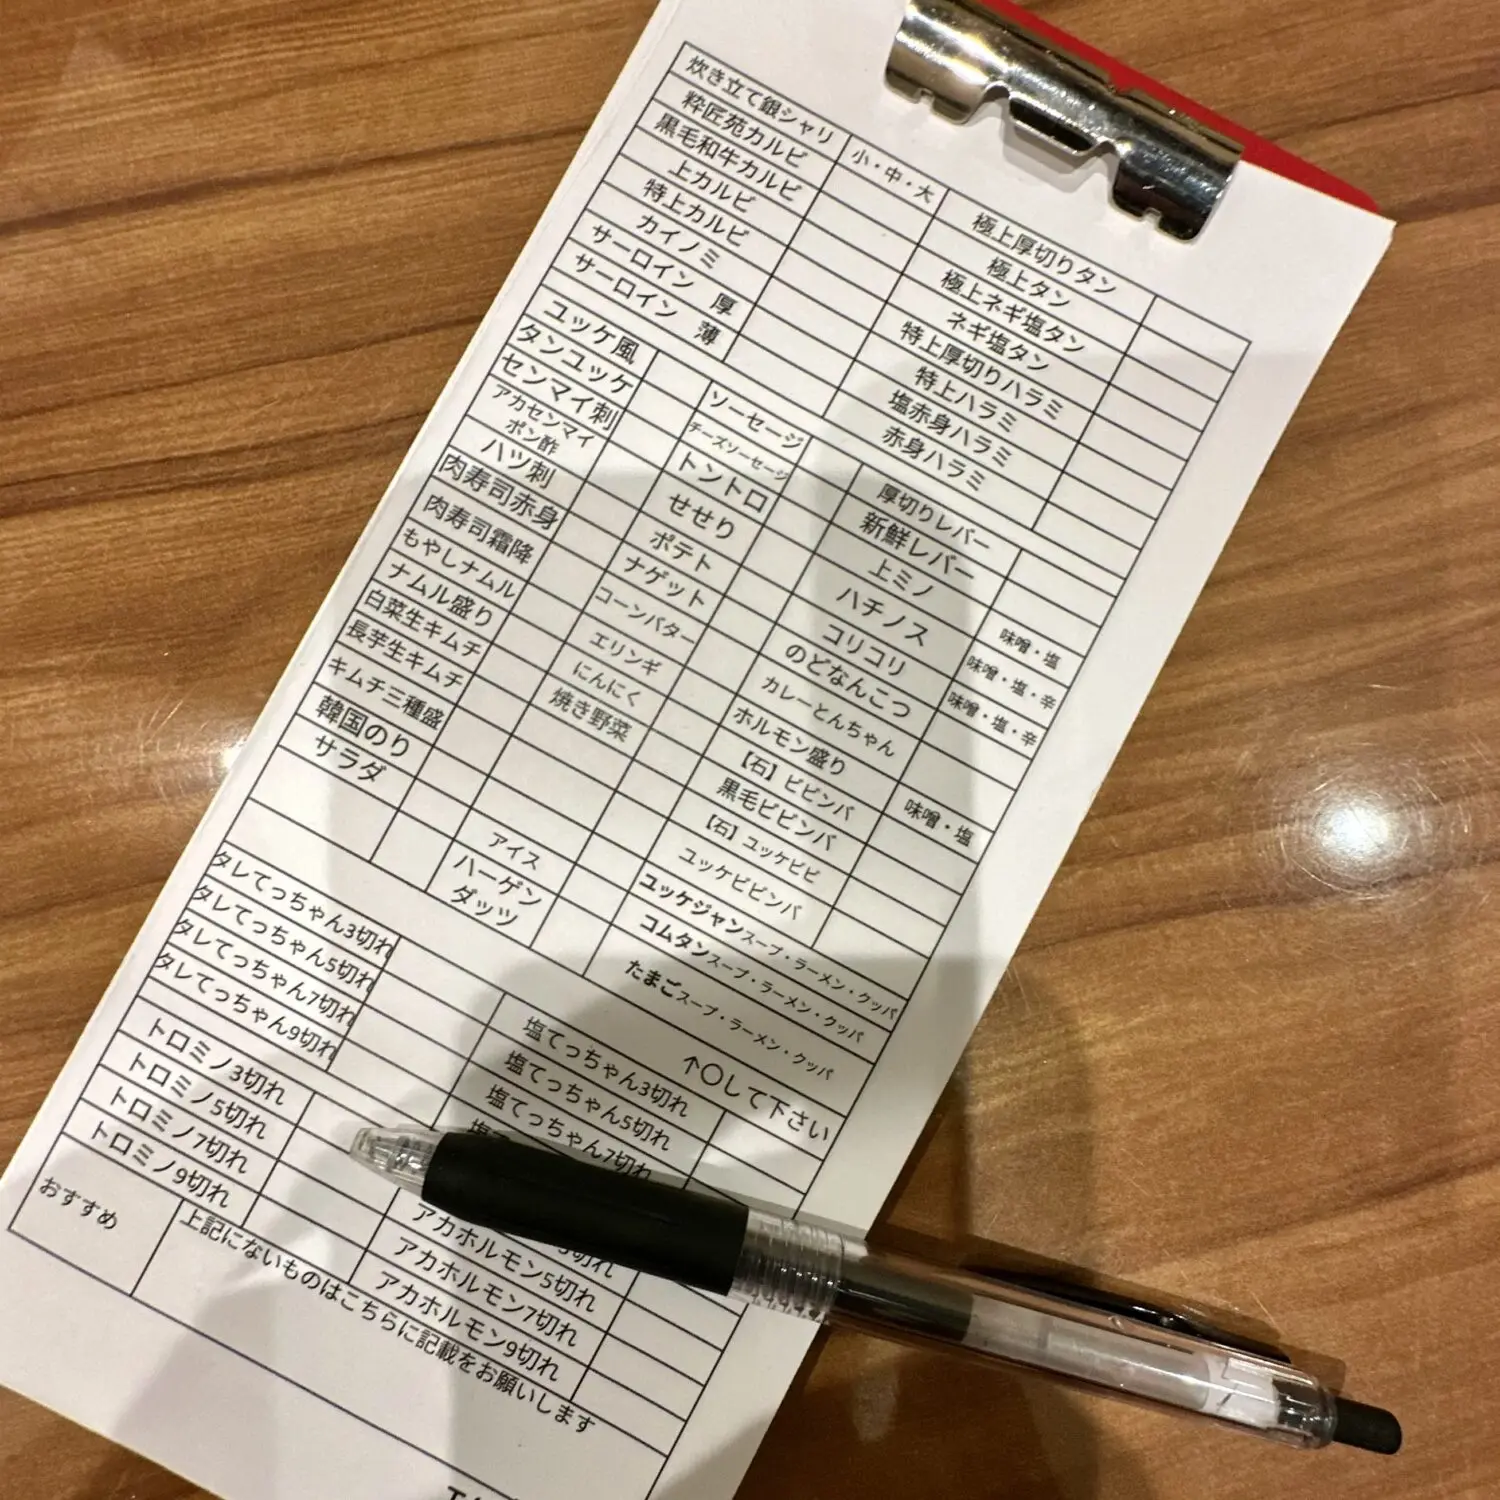 炊き立て銀シャリ 小・中・大
粋匠苑カルビ
黒毛和牛カルビ
上カルビ
特上カルビ
カイノミ
サーロイン 厚
サーロイン 薄
極上厚切りタン
極上タン
極上ネギ塩タン
ネギ塩タン
特上厚切りハラミ
特上ハラミ
塩赤身ハラミ
赤身ハラミ
ユッケ風
タンユッケ
センマイ刺
アカセンマイ
ポン酢
ハツ刺
肉寿司赤身
肉寿司霜降
もやしナムル
ナムル盛り
白菜生キムチ
長芋生キムチ
キムチ三種盛
韓国のり
サラダ
ソーセージ
チーズソーセージ
トントロ
せせり
ポテト
ナゲット
コーンバター
エリンギ
にんにく
焼き野菜
アイス
ハーゲン
ダッツ
厚切りレバー
新鮮レバー
上ミノ 味噌・塩
ハチノス 味噌・塩・辛
コリコリ 味噌・塩・辛
のどなんこつ
カレーとんちゃん
ホルモン盛り 味噌・塩
【石】ビビンバ
黒毛ビビンバ
【石】ユッケビビ
ユッケビビンバ
ユッケジャンスープ・ラーメン・クッパ
コムタンスープ・ラーメン・クッパ
たまごスープ・ラーメン・クッパ
↑〇して下さい
タレてっちゃん3切れ
タレてっちゃん5切れ
タレてっちゃん7切れ
タレてっちゃん9切れ
塩てっちゃん3切れ
塩てっちゃん5切れ
塩てっちゃん7切れ
トロミノ3切れ
トロミノ5切れ
トロミノ7切れ
トロミノ9切れ
3切れ
アカホルモン5切れ
アカホルモン7切れ
アカホルモン9切れ
おすすめ
上記にないものはこちらに記載をお願いします